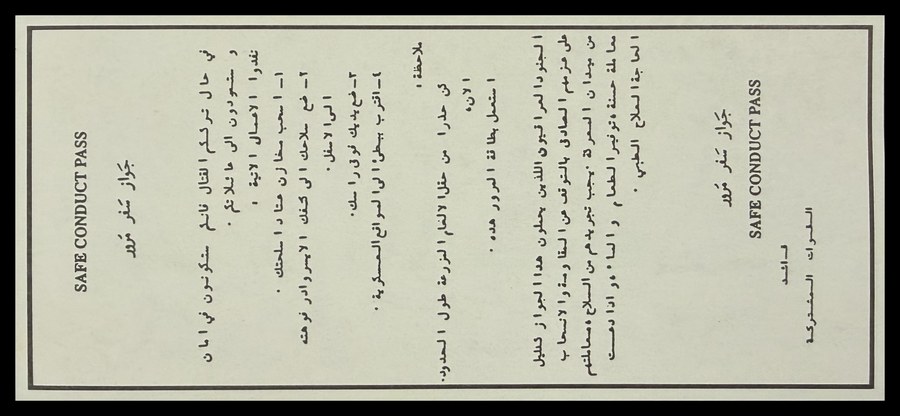 SAFE CONDUCT PASS
جَواز سَفر مُرور
في حال ترككم القتال فانكم ستكونون في امان
و ستعودون الى عائلاتكم .
نفدوا الاعمال الاتية :
١ـ اسحب مخازن عتاد اسلحتك .
٢ـ ضع سلاحك الى كتفك الايسر وادر فوهته
الى الاسفل .
٣ـ ضع يديك فوق راسك .
٤ـ اقترب ببطئ الى المواقع العسكرية .
ملاحظة :
كن حذرا من حقل الالغام المزرعة طول الحدود .
الان:
استعمل بطاقة المرور هده .
الجنود العراقيون اللذين يحملون هدا الجواز كدليل
على عزمهم الصادق بالتوقف عن المقاومة والانسحاب
من ميدان المعركة . يجب تجريدهم من السلاح ، معاملتهم
معاملة حسنة، توفير الطعام و الماء، و ادا دعت
الحاجة العلاج الطبي .
جَواز سَفر مُرور
SAFE CONDUCT PASS
قائد
القوات المشتركة